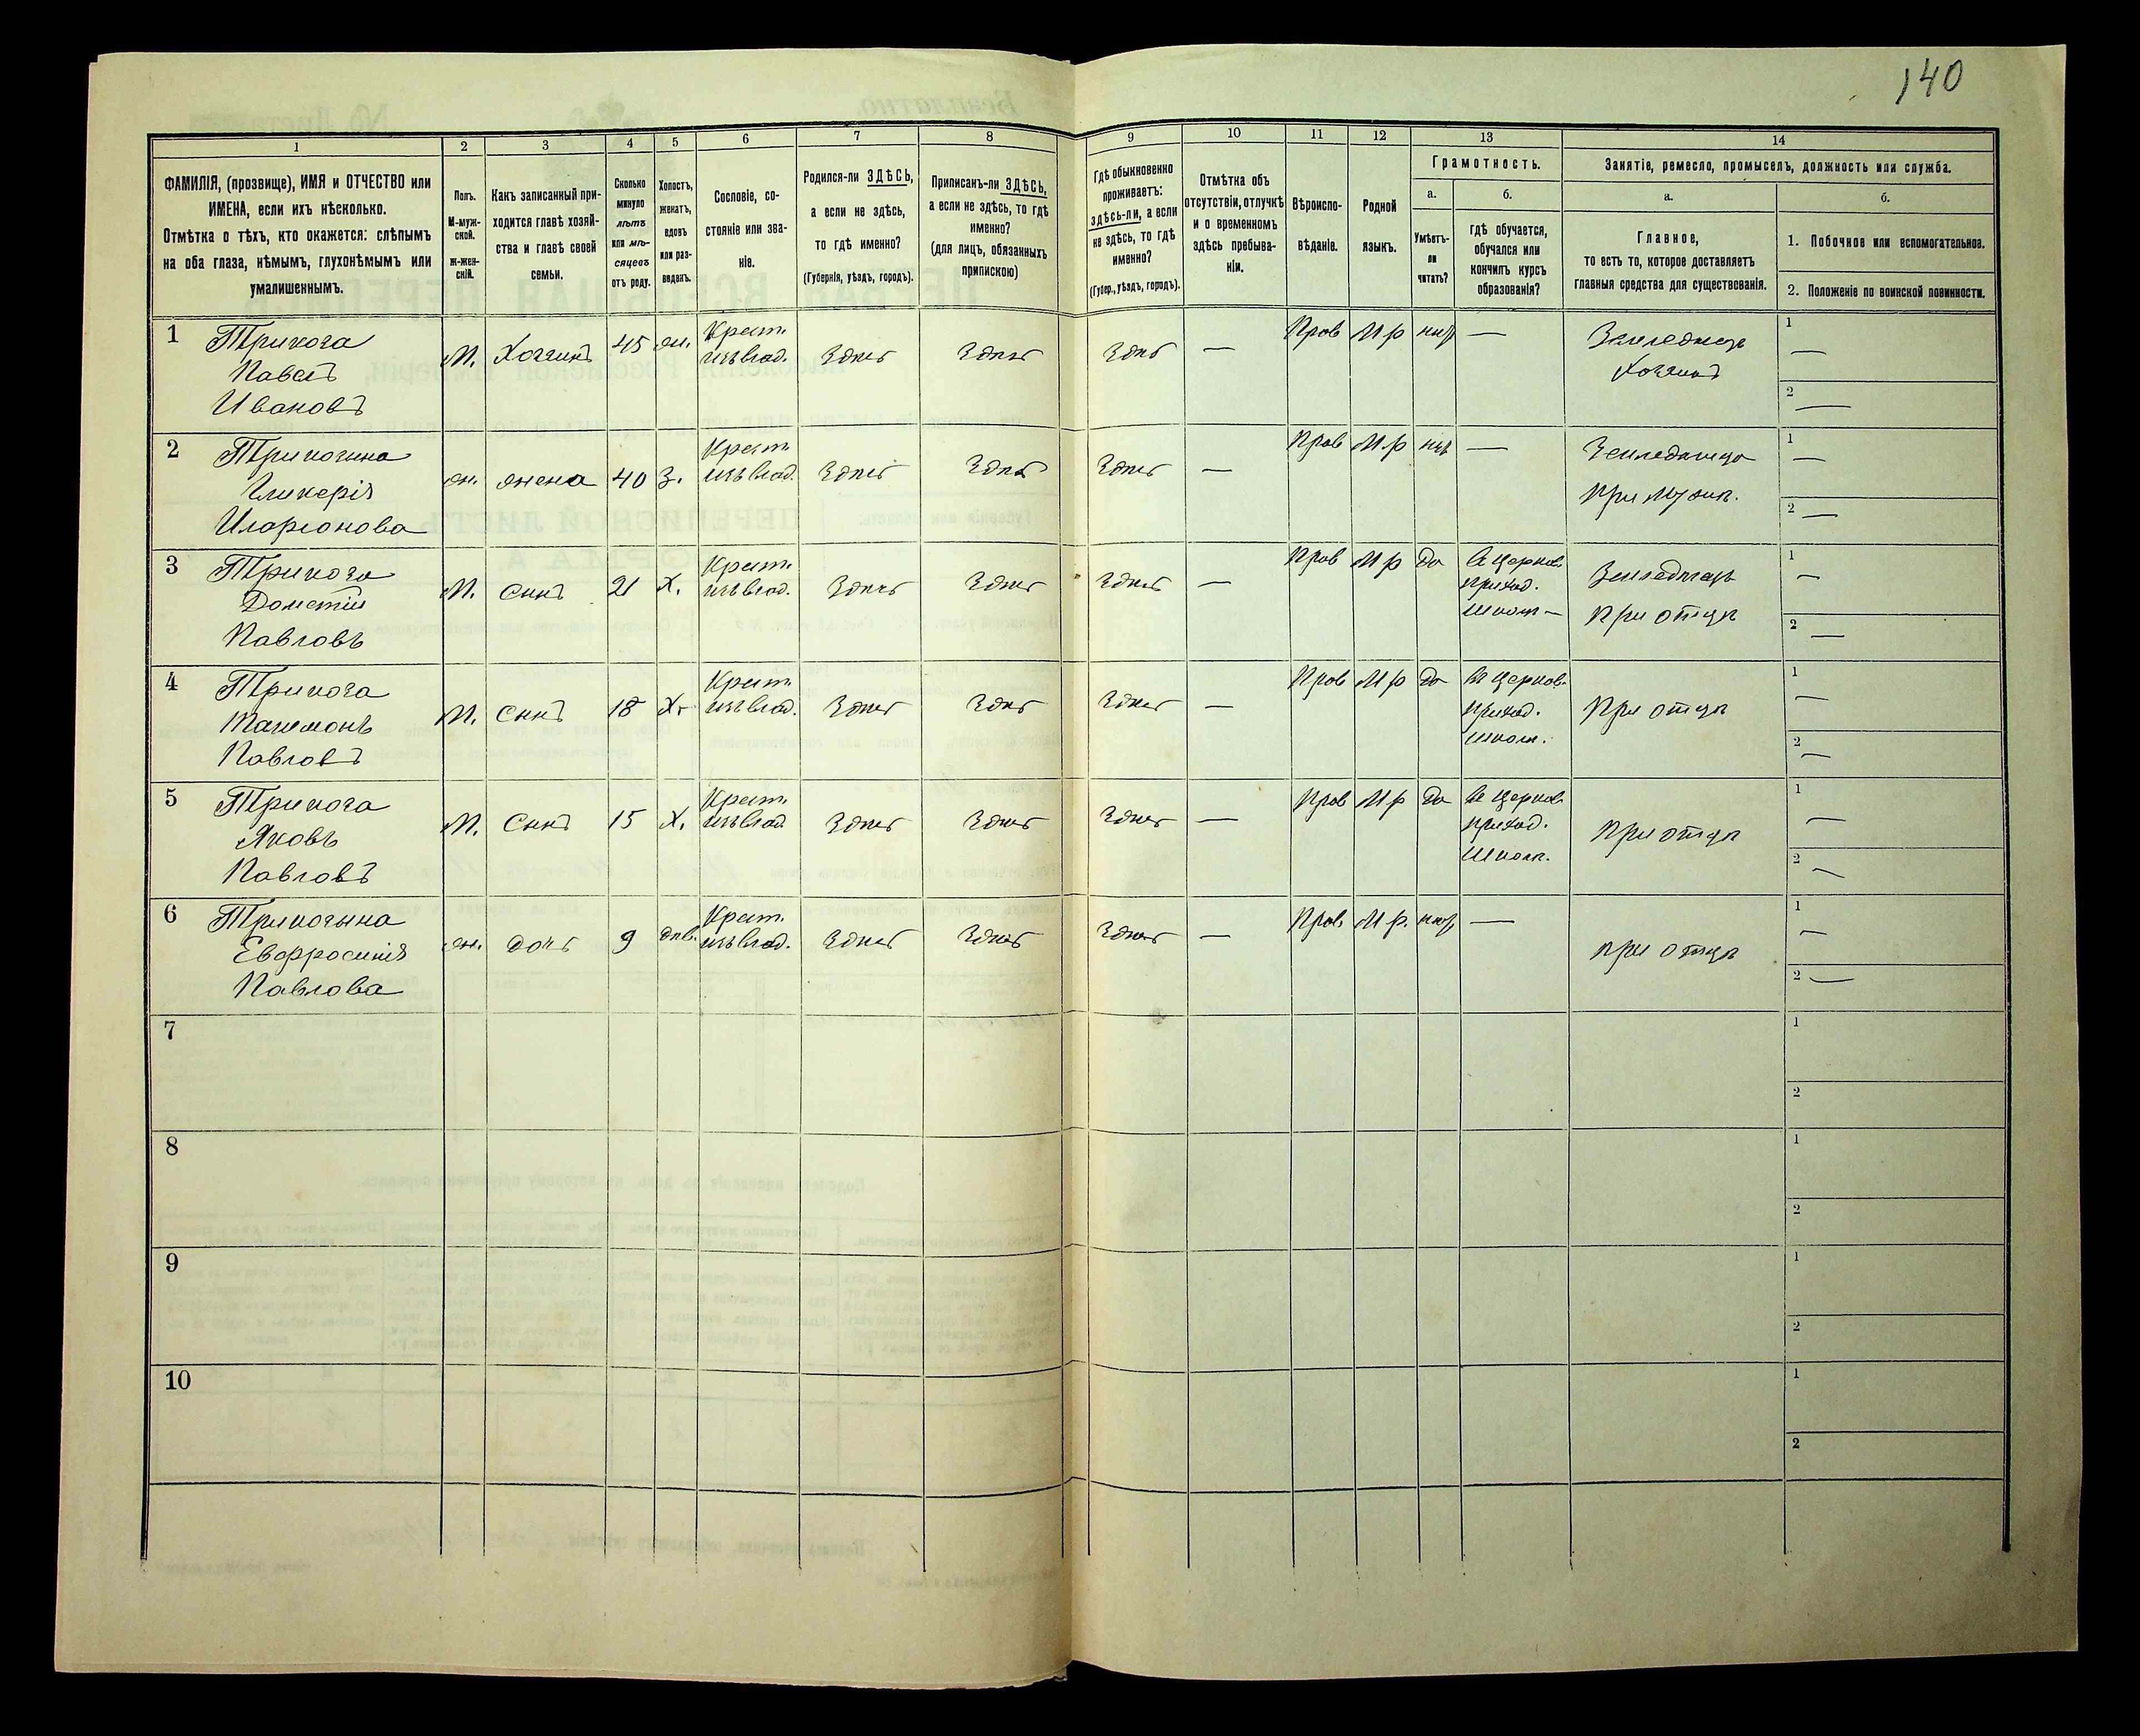 140
1
2
3
4
5
6
7
8
9
10
11
12
13
14
ФАМИЛІЯ, (прозвище), ИМЯ и ОТЧЕСТВО или
ИМЕНА, если ихъ нѣсколько.
Отмѣтка о тѣхъ, кто окажется: слѣпымъ
на оба глаза, нѣмымъ, глухонѣмымъ или
умалишеннымъ.
Полъ.
М-муж-
ской.
ж-жен-
скій.
Какъ записанный при-
ходится главѣ хозяй-
ства и главѣ своей
семьи.
Сколько
минуло
лѣтъ
или мѣ-
сяцевъ
отъ роду.
Холостъ,
женатъ,
вдовъ
или раз-
веденъ.
Сословіе, со-
стояніе или зва-
ніе.
Родился-ли ЗДѢСЬ,
а если не здѣсь,
то гдѣ именно?
(Губернія, уѣздъ, городъ).
Приписанъ-ли ЗДѢСЬ,
а если не здѣсь, то гдѣ
именно?
(для лицъ, обязанныхъ
припискою)
Гдѣ обыкновенно
проживаетъ:
здѣсь-ли, а если
не здѣсь, то гдѣ
именно?
(Губер., уѣздъ, городъ).
Отмѣтка объ
отсутствіи, отлучкѣ
и о временномъ
здѣсь пребыва-
ніи.
Вѣроиспо-
вѣданіе.
Родной
языкъ.
Грамотность.
а.
Умѣетъ-
ли
читать?
б.
гдѣ обучается,
обучался или
кончилъ курсъ
образованія?
Занятіе, ремесло, промыселъ, должность или служба.
а.
Главное,
то есть то, которое доставляетъ
главныя средства для существованія.
б.
1. Побочное или вспомогательное.
2. Положеніе по воинской повинности.
1
Трикоза
Павелъ
Ивановъ
М. Хозяинъ 45 жн. Крест. изъ влад. Здѣсь Здѣсь Здѣсь — Пров М р нѣт —
Земледѣлецъ
Хозяинъ
1 —
2 —
2
Гликерія
Иларіонова
жн. жена 40 З. Крест. изъ влад. Здѣсь Здѣсь Здѣсь — Пров М.р нѣт —
1 —
2 —
3
Трикоза
Дометій
Павловъ
М. Сынъ 21 Х. Крест. изъ влад. Здѣсь Здѣсь Здѣсь — Пров М р Да
В церков.
приход.
школѣ —
Земледѣлецъ
при отцѣ
1 —
2 —
4
Трикоза
Павловъ
М. Сынъ 18 Х. Крест. изъ влад. Здѣсь Здѣсь Здѣсь — Пров М р Да
Въ церков.
приход.
школѣ.
При отцѣ
1 —
2 —
5
Трикоза
Яковъ
Павловъ
М. Сынъ 15 Х. Крест. изъ влад. Здѣсь Здѣсь Здѣсь — Пров М р Да
Въ церков.
приход.
школѣ.
При отцѣ
1 —
2 —
6
Евфросинія
Павлова
жн. дочь 9 дѣв. Крест. изъ влад. Здѣсь Здѣсь Здѣсь — Пров. М р. нѣт —
при отцѣ
1 —
2 —
7
1
2
8
1
2
9
1
2
10
1
2